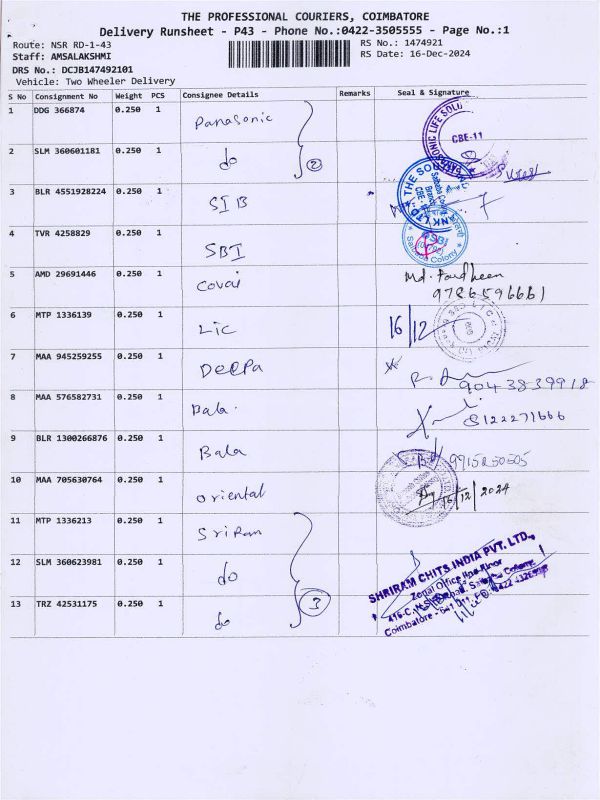 THE PROFESSIONAL COURIERS, COIMBATORE
Delivery Runsheet - P43 - Phone No.:0422-3505555 - Page No.:1
Route: NSR RD-1-43 RS No.: 1474921
Staff: AMSALAKSHMI RS Date: 16-Dec-2024
DRS No.: DCJB147492101
Vehicle: Two Wheeler Delivery
S No Consignment No Weight PCS Consignee Details Remarks Seal & Signature
1 DDG 366874 0.250 1 Panasonic
CBE-11
2 SLM 360601181 0.250 1 do 2
3 BLR 4551928224 0.250 1 SIB
4 TVR 4258829 0.250 1 SBI
SBI
Saibaba Colony
5 AMD 29691446 0.250 1 Covai Md. Fardheen
9786596661
6 MTP 1336139 0.250 1 LIC 16/12
7 MAA 945259255 0.250 1 Deepa 9043839918
8 MAA 576582731 0.250 1 Bala. 8122271666
9 BLR 1300266876 0.250 1 Bala 9715250505
10 MAA 705630764 0.250 1 oriental 16/12/2024
11 MTP 1336213 0.250 1 Sriram
12 SLM 360623981 0.250 1 do
SHRIRAM CHITS INDIA PVT. LTD.,
Zonal Office
13 TRZ 42531175 0.250 1 do 3
Coimbatore - 641 011.